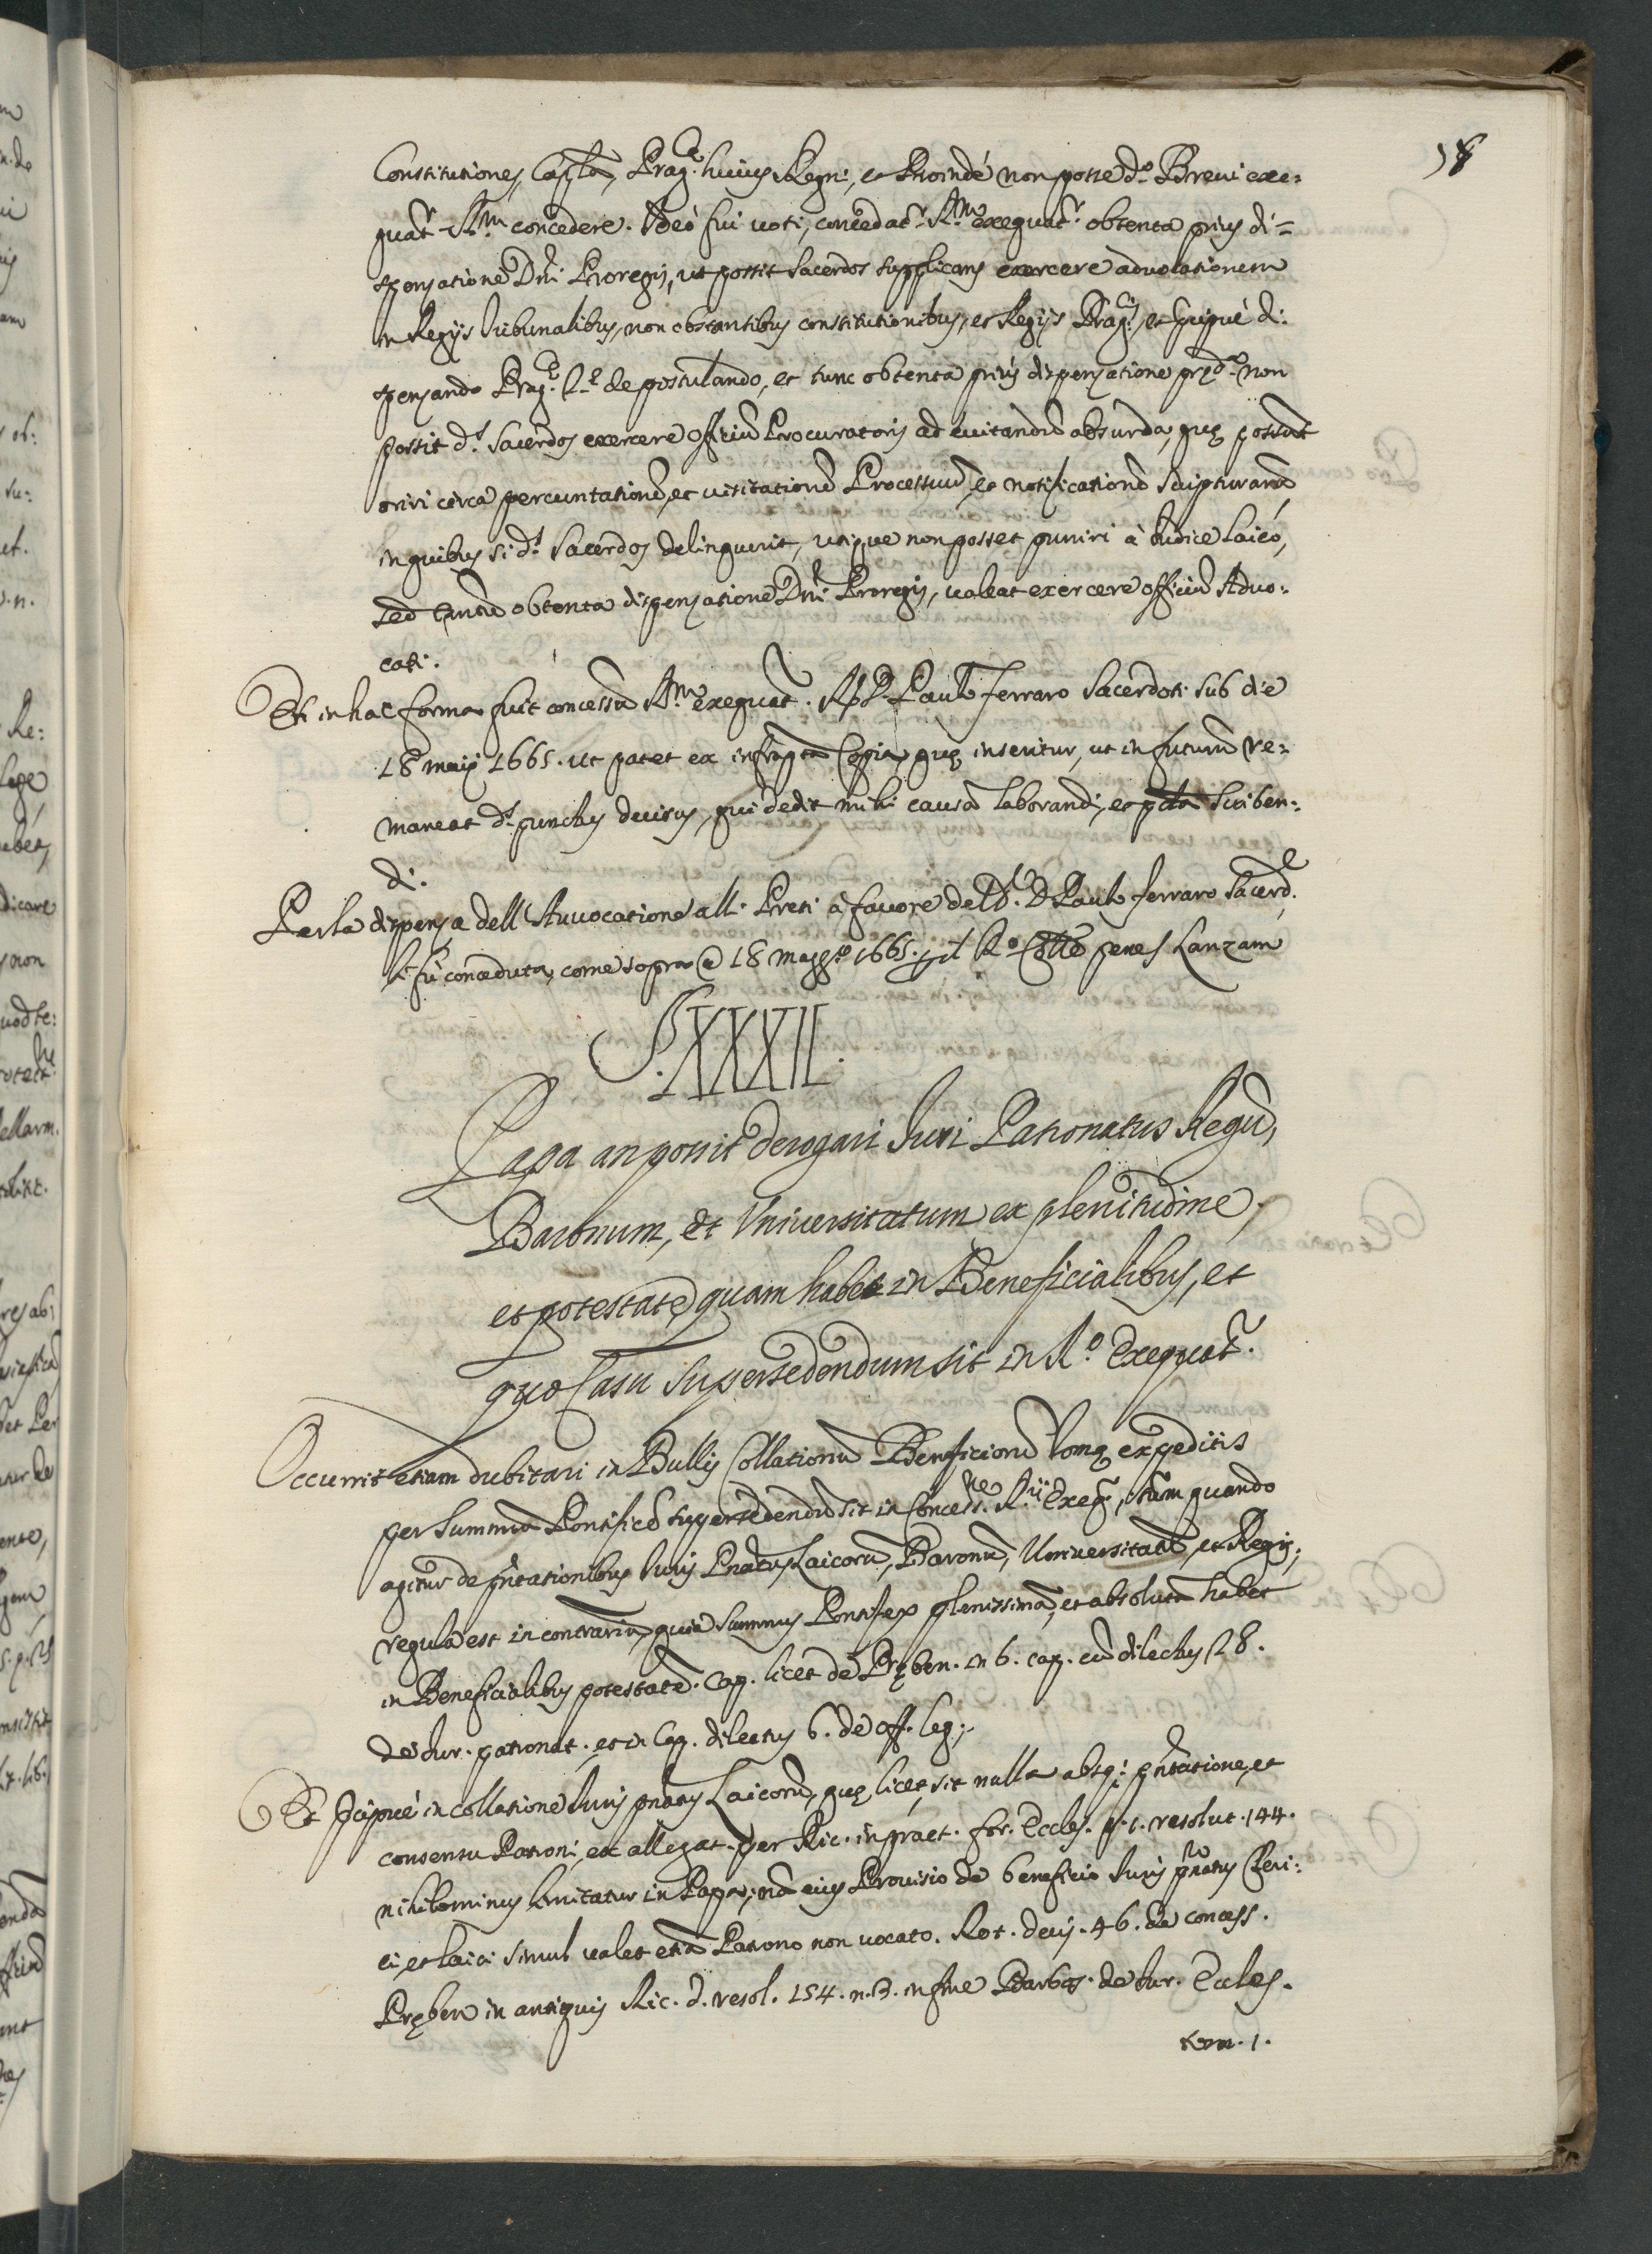 58
Constitutiones, Capla, Prag.ca huius Regni, et Proindé non posse d.o Breui exe=
quat.r R.m concedere. Ideó fui uoti, concedat.r R.m exequat.r obtenta prius di=
spensatione Dni Proregis, ut possit Sacerdos supplicans exercere aduocationem
in Regijs Tribunalibus, non obstantibus constitutionibus, et Regijs Prag.cis, et precipué di=
spensando Prag.ca p.a de postulando, et tunc obtenta prius dispensatione pred.a non
possit d.s Sacerdos exercere offitiu Procuratoris ad euitandu absurda, que possunt
oriri circa percuntatione, et uisitatione Processuu, et notificatione Scripturaru
in quibus si d.s Sacerdos delinquerit, utique non posset puniri à Iudice Laico,
sed tantu obtenta dispensatione Dni Proregis, ualeat exercere officiu Aduo=
cati.
Et in hac forma fuit concessu R.m exequat.r R.do D. Paulo Ferraro Sacerdoti sub die
18 maij 1665. ut patet ex infrapta Copia que inseritur, ut in futuru re=
maneat d.s punctus decisus, qui dedit mihi causa laborandi, et pcta Scriben=
di.
Per la dispensa dell Auuocatione alli Preti à fauore del D.r D. Paulo Ferraro Sacerd.e
li fú conceduta, come sopra @ 18 magg.o 1665. p il R.o Coll.e penes Lanzam
§. XXXII.
Papa an possit derogari Iuri Patronatus Regu,
Baronum, et Vniuersitatum ex plenitudine,
et potestate, quam habet in Beneficialibus, et
quo Casu Supersedendum sit in R.o Exequat.r
Occurrit etiam dubitari in Bullis Collationu Beneficioru Rome expeditis
per Summu Pontifice supersedendu sit in Concess.ne R.ij Exeq.r, tum quando
agitur de pntationibus Iuris Pnatus Laicoru, Baronu, Vniuersitatu, et Regis;
regula est in contrariu, quia Summus Pontifex plenissima, et absoluta habet
in Beneficialibus potestate. Cap. licet de Preben. in 6. cap. cu dilectus 28.
de Iur. patronat. et in Cap. dilectus 6. de off. leg.
Et precipué in collatione Iuris pnatus Laicoru, que licet sit nulla absq; pntatione, et
consensu Patroni, ex allegat. per Ric. in praet. for. Eccles. p. 1. resolut. 144.
nihilominus limitatur in Papa; na eius Prouisio de beneficio Iuris pnatus Cleri=
ci, et laici simul ualet etia Patrono non uocato. Rot. decis. 46. de concess.
Preben in antiquis Ric. d. resol. 154. n. 3. in fine Barbos. de Iur. Eccles.
tom. 1.